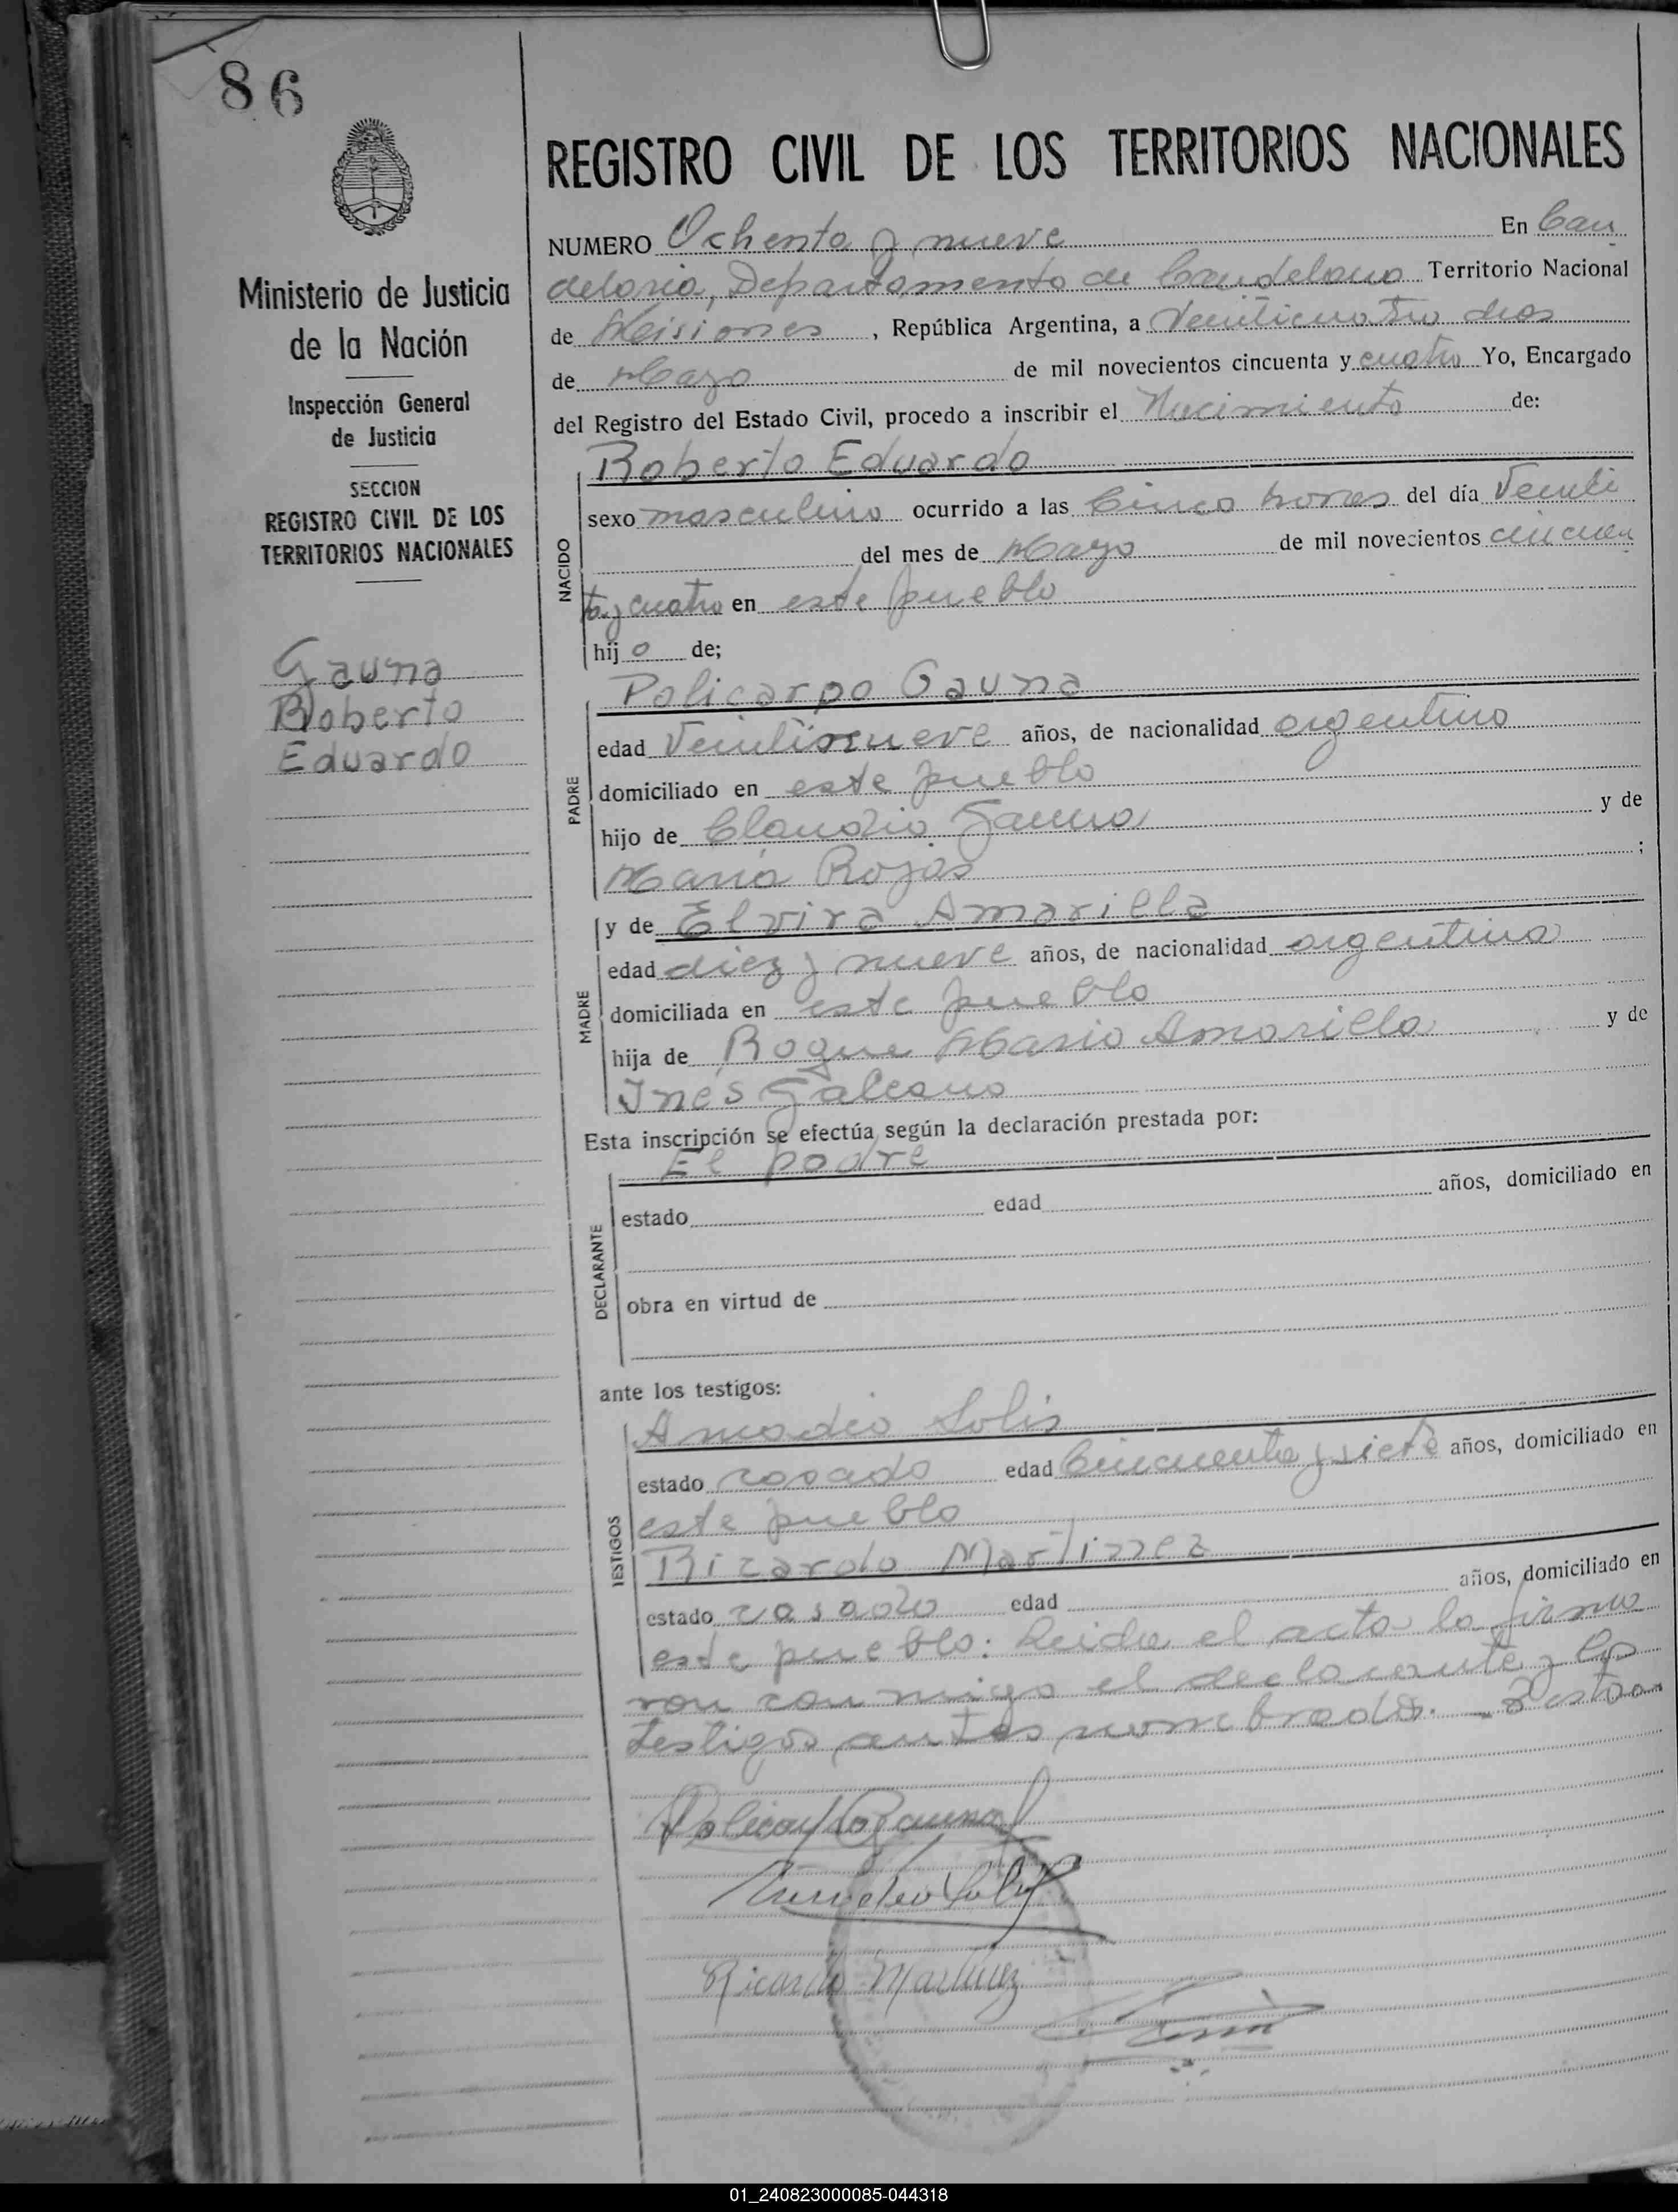 86
Ministerio de Justicia
de la Nación
Inspección General
de Justicia
SECCION
REGISTRO CIVIL DE LOS
TERRITORIOS NACIONALES
Gauna
Roberto
Eduardo
REGISTRO CIVIL DE LOS TERRITORIOS NACIONALES
NUMERO Ochenta y nueve En Can
delaria, Departamento de Candelaria Territorio Nacional
de Misiones, República Argentina, a Veinticuatro dias
de Mayo de mil novecientos cincuenta y cuatro Yo, Encargado
del Registro del Estado Civil, procedo a inscribir el Nacimiento de:
Roberto Eduardo
NACIDO
sexo masculino ocurrido a las Cinco horas del día Veinti
del mes de Mayo de mil novecientos cincuen
ta y cuatro en este pueblo
hijo de;
Policarpo Gauna
PADRE
edad Veintinueve años, de nacionalidad argentino
domiciliado en este pueblo
hijo de Claudio Gauna y de
María Rojas;
y de Elvira Amarilla
MADRE
edad diez y nueve años, de nacionalidad argentina
domiciliada en este pueblo
hija de Roque Mario Amarilla y de
Inés Galeano
Esta inscripción se efectúa según la declaración prestada por:
El padre
DECLARANTE
estado edad años, domiciliado en
obra en virtud de
ante los testigos:
Amadio Solis
TESTIGOS
estado casado edad Cincuenta y siete años, domiciliado en
este pueblo
Ricardo Martinez
estado casado edad años, domiciliado en
este pueblo. Leida el acta la firma
ron conmigo el declarante y lo
testigos antes nombrados.
Policarpo Gauna
Solis
Ricardo Martinez
01_240823000085-044318